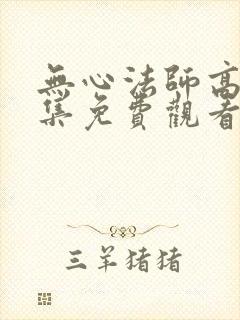 無心法師高
集免費觀看
三羊猪猪